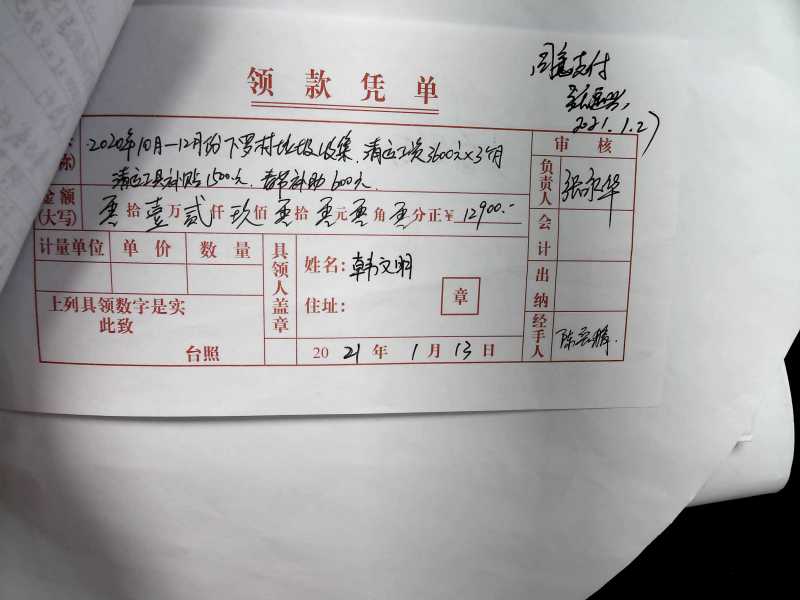 领款凭单
同意支付
2021.1.2
2020年10月—12月份下罗村垃圾收集、清运工资3600元×3个月
清运工具补贴1500元、春节补助600元.
审核
金额
(大写)
零拾壹万贰仟玖佰零拾零元零角零分正¥12900.-
负责人
张永华
会计
计量单位 单价 数量
具领人盖章
姓名:韩文明
住址:
章
出纳
上列具领数字是实
此致
台照
2021年1月13日
经手人